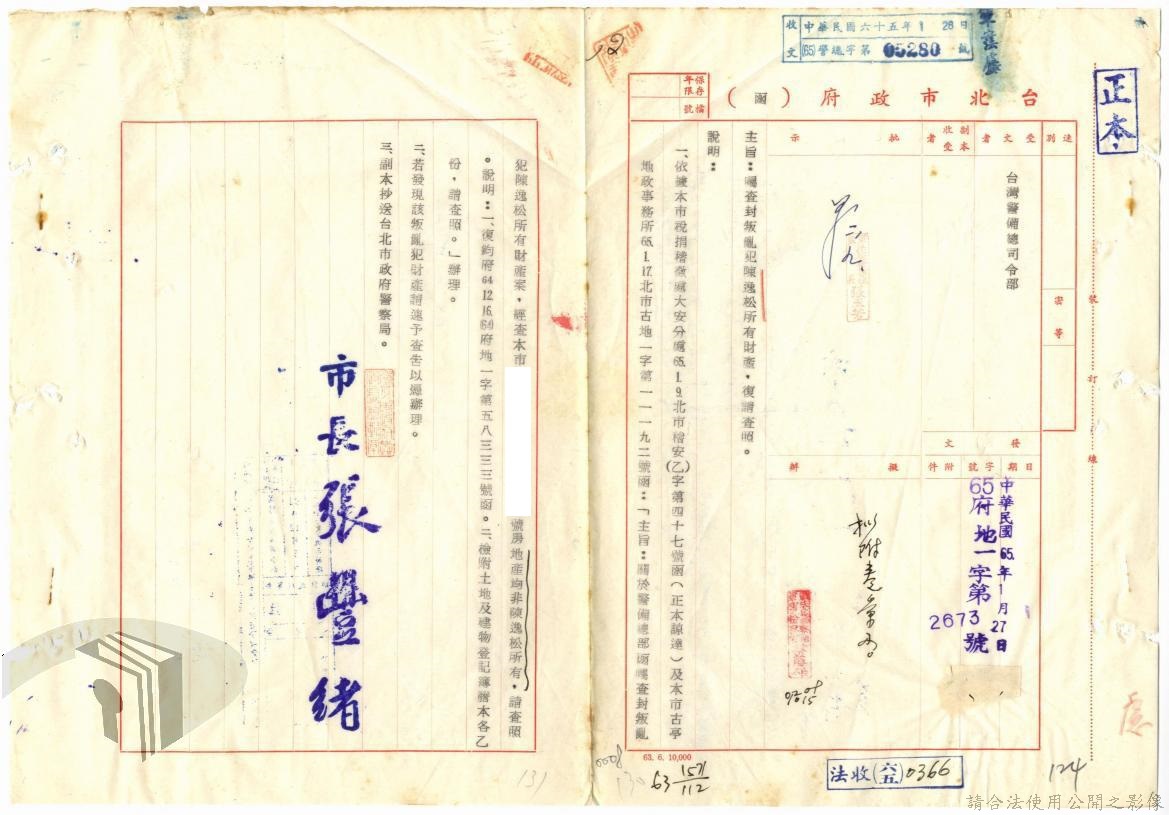 正本
收文 中華民國六十五年1 28日
(65)警總字第 05280 號
保存年限 檔號
台北市政府(函)
速別
受文者
副本收受者
批示
密等
台灣警備總司令部
發文
日期 字號 附件
擬辦
中華民國65.年1月27日
65府地一字第2673號
裝訂線
主旨：囑查封叛亂犯陳逸松所有財產，復請查照。
說明：
一、依據本市稅捐稽徵處大安分處65.1.9.北市稽安(乙)字第四十七號函(正本諒達)及本市古亭
地政事務所65.1.17.北市古地一字第一一一九二號函：「主旨：關於警備總部函囑查封叛亂
犯陳逸松所有財產案，經查本市
號房地產均非陳逸松所有，請查照
。說明：一、復鈞府64.12.16.(64)府地一字第五八三三三號函。二、檢附土地及建物登記簿謄本各乙
份，請查照。」辦理。
二、若發現該叛亂犯財產請速予查告以憑辦理。
三、副本抄送台北市政府警察局。
市長張豐緒
63. 6. 10,000
63 1571/112
法收(六五)0366
124
131
130
0008
請合法使用公開之影像